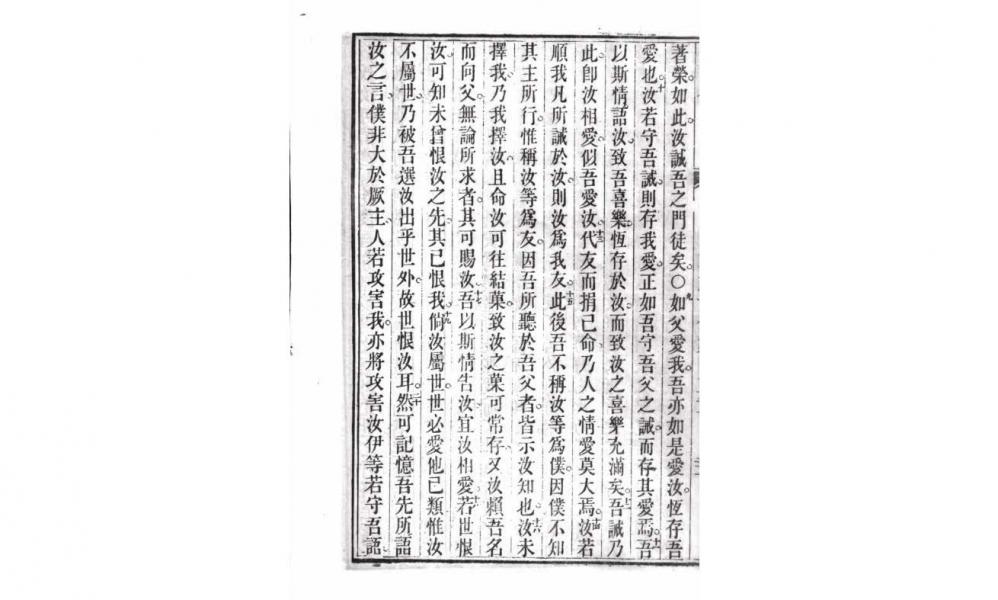 著榮。如此、汝誠吾之門徒矣。〇九如父愛我。吾亦如是愛汝。恆存吾
愛也。十汝若守吾誡、則存我愛。正如吾守吾父之誡。而存其愛焉。十一吾
以斯情語汝、致吾喜樂恆存於汝。而致汝之喜樂充滿矣。十二吾誡乃
此。卽汝相愛、似吾愛汝。十三代友而捐己命、乃人之情愛莫大焉。十四汝若
順我凡所誡於汝、則汝爲我友。十五此後吾不稱汝等爲僕。因僕不知
其主所行。惟稱汝等爲友。因吾所聽於吾父者。皆示汝知也。十六汝未
擇我、乃我擇汝。且命汝可往結菓。致汝之菓可常存、又汝賴吾名
而向父、無論所求者。其可賜汝。十七吾以斯情吿汝、宜汝相愛。十八若世恨
汝、可知未曾恨汝之先、其已恨我。十九倘汝屬世。世必愛他己類、惟汝
不屬世、乃被吾選汝出乎世外。故世恨汝耳。二十然可記憶吾先所語
汝之言、僕非大於厥主、人若攻害我。亦將攻害汝、伊等若守吾語